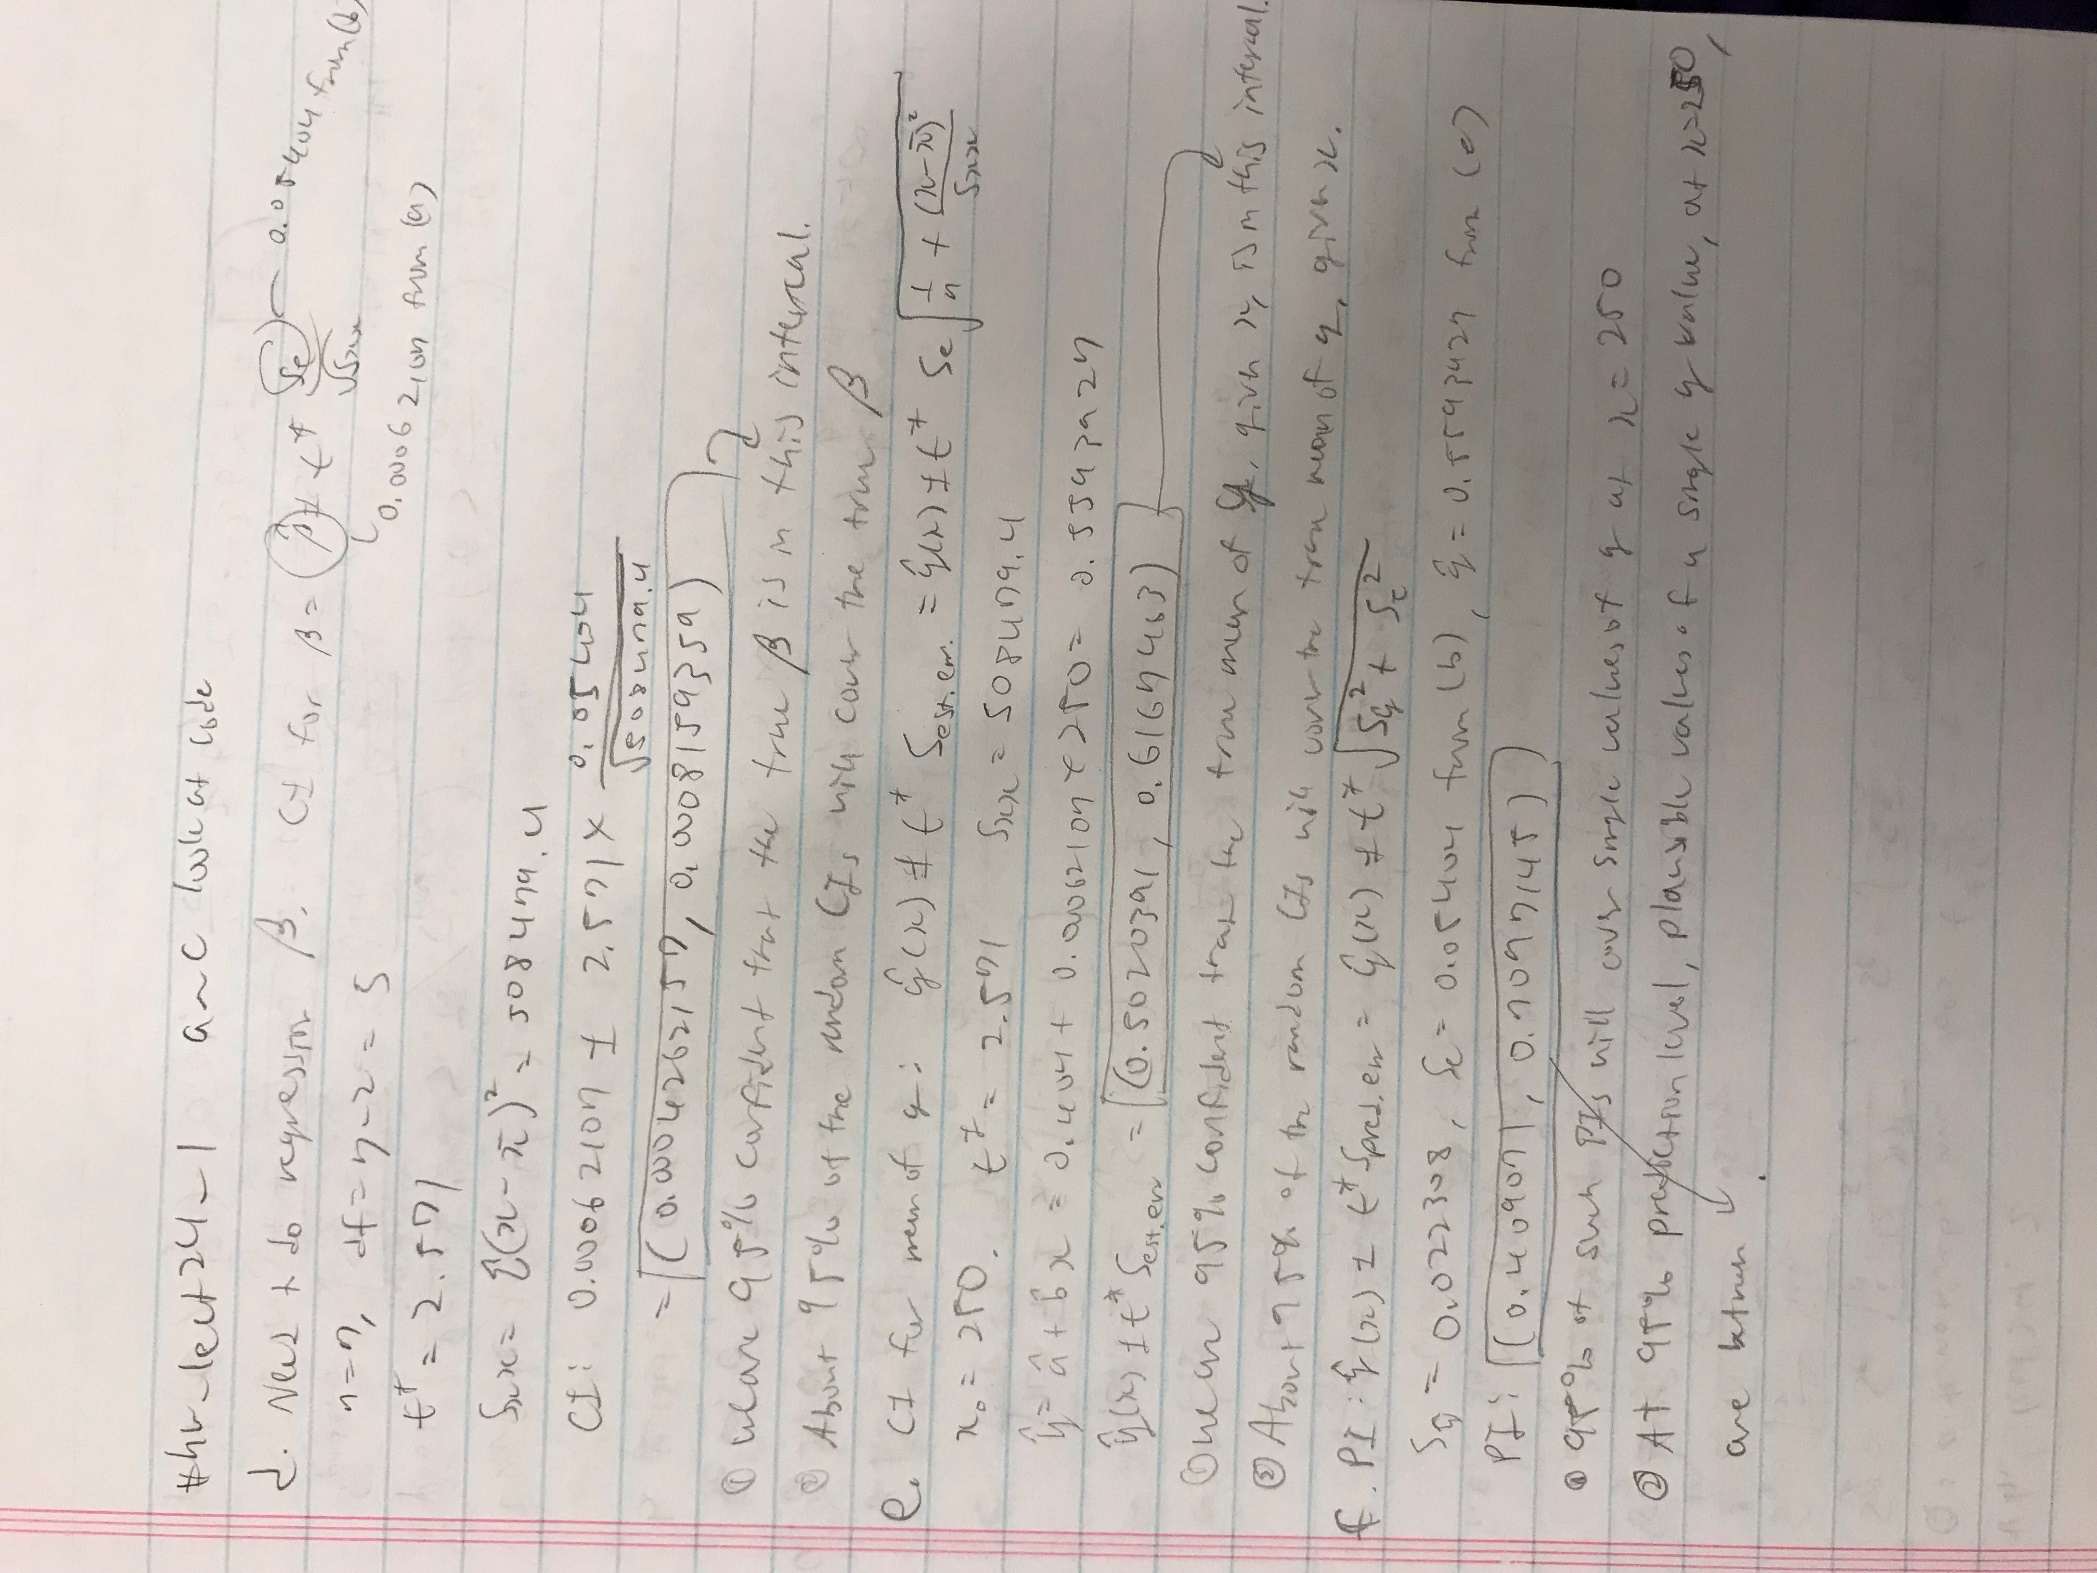 #hw_lect24-1 a~c look at code
d. Need to do regression β. CI for β = β̂ ± t* Se/√Sxx
0.05404 from (b)
0.0006210η from (a)
n=7, df = n-2 = 5
t* = 2.571
Sxx = Σ(x-x̄)² = 508479.4
CI: 0.0006210η ± 2.571 × 0.05404/√508479.4
= (0.0004262157, 0.0008159359)
① We are 95% confident that the true β is in this interval.
② About 95% of the random CIs will cover the true β
e. CI for mean of y: ŷ(x) ± t* Sest.err. = ŷ(x) ± t* Se √(1/n + (x-x̄)²/Sxx)
x₀ = 250. t* = 2.571 Sxx = 508479.4
ŷ = â + b̂x = 0.404 + 0.0006210η × 250 = 0.5593927
ŷ(x) ± t* Sest.err = (0.5020391, 0.6167463)
① We are 95% confident that the true mean of y, given x, is in this interval.
② About 95% of the random CIs will cover the true mean of y, given x.
f. PI: ŷ(x) ± t* Spred.err = ŷ(x) ± t* √(Sŷ² + Se²)
Sŷ = 0.022308, Se = 0.05404 from (b), ŷ = 0.5593927 from (e)
PI: (0.409071, 0.7097145)
① 95% of such PIs will cover single values of y at x = 250
② At 95% prediction level, plausible values of a single y value, at x=250,
are between .